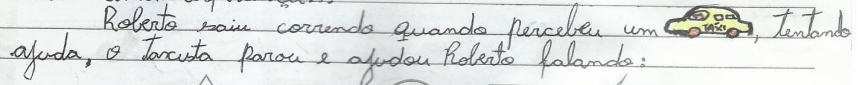 Roberto saiu correndo quando percebeu um TAXI, tentando
ajuda, o taxista parou e ajudou Roberto falando: